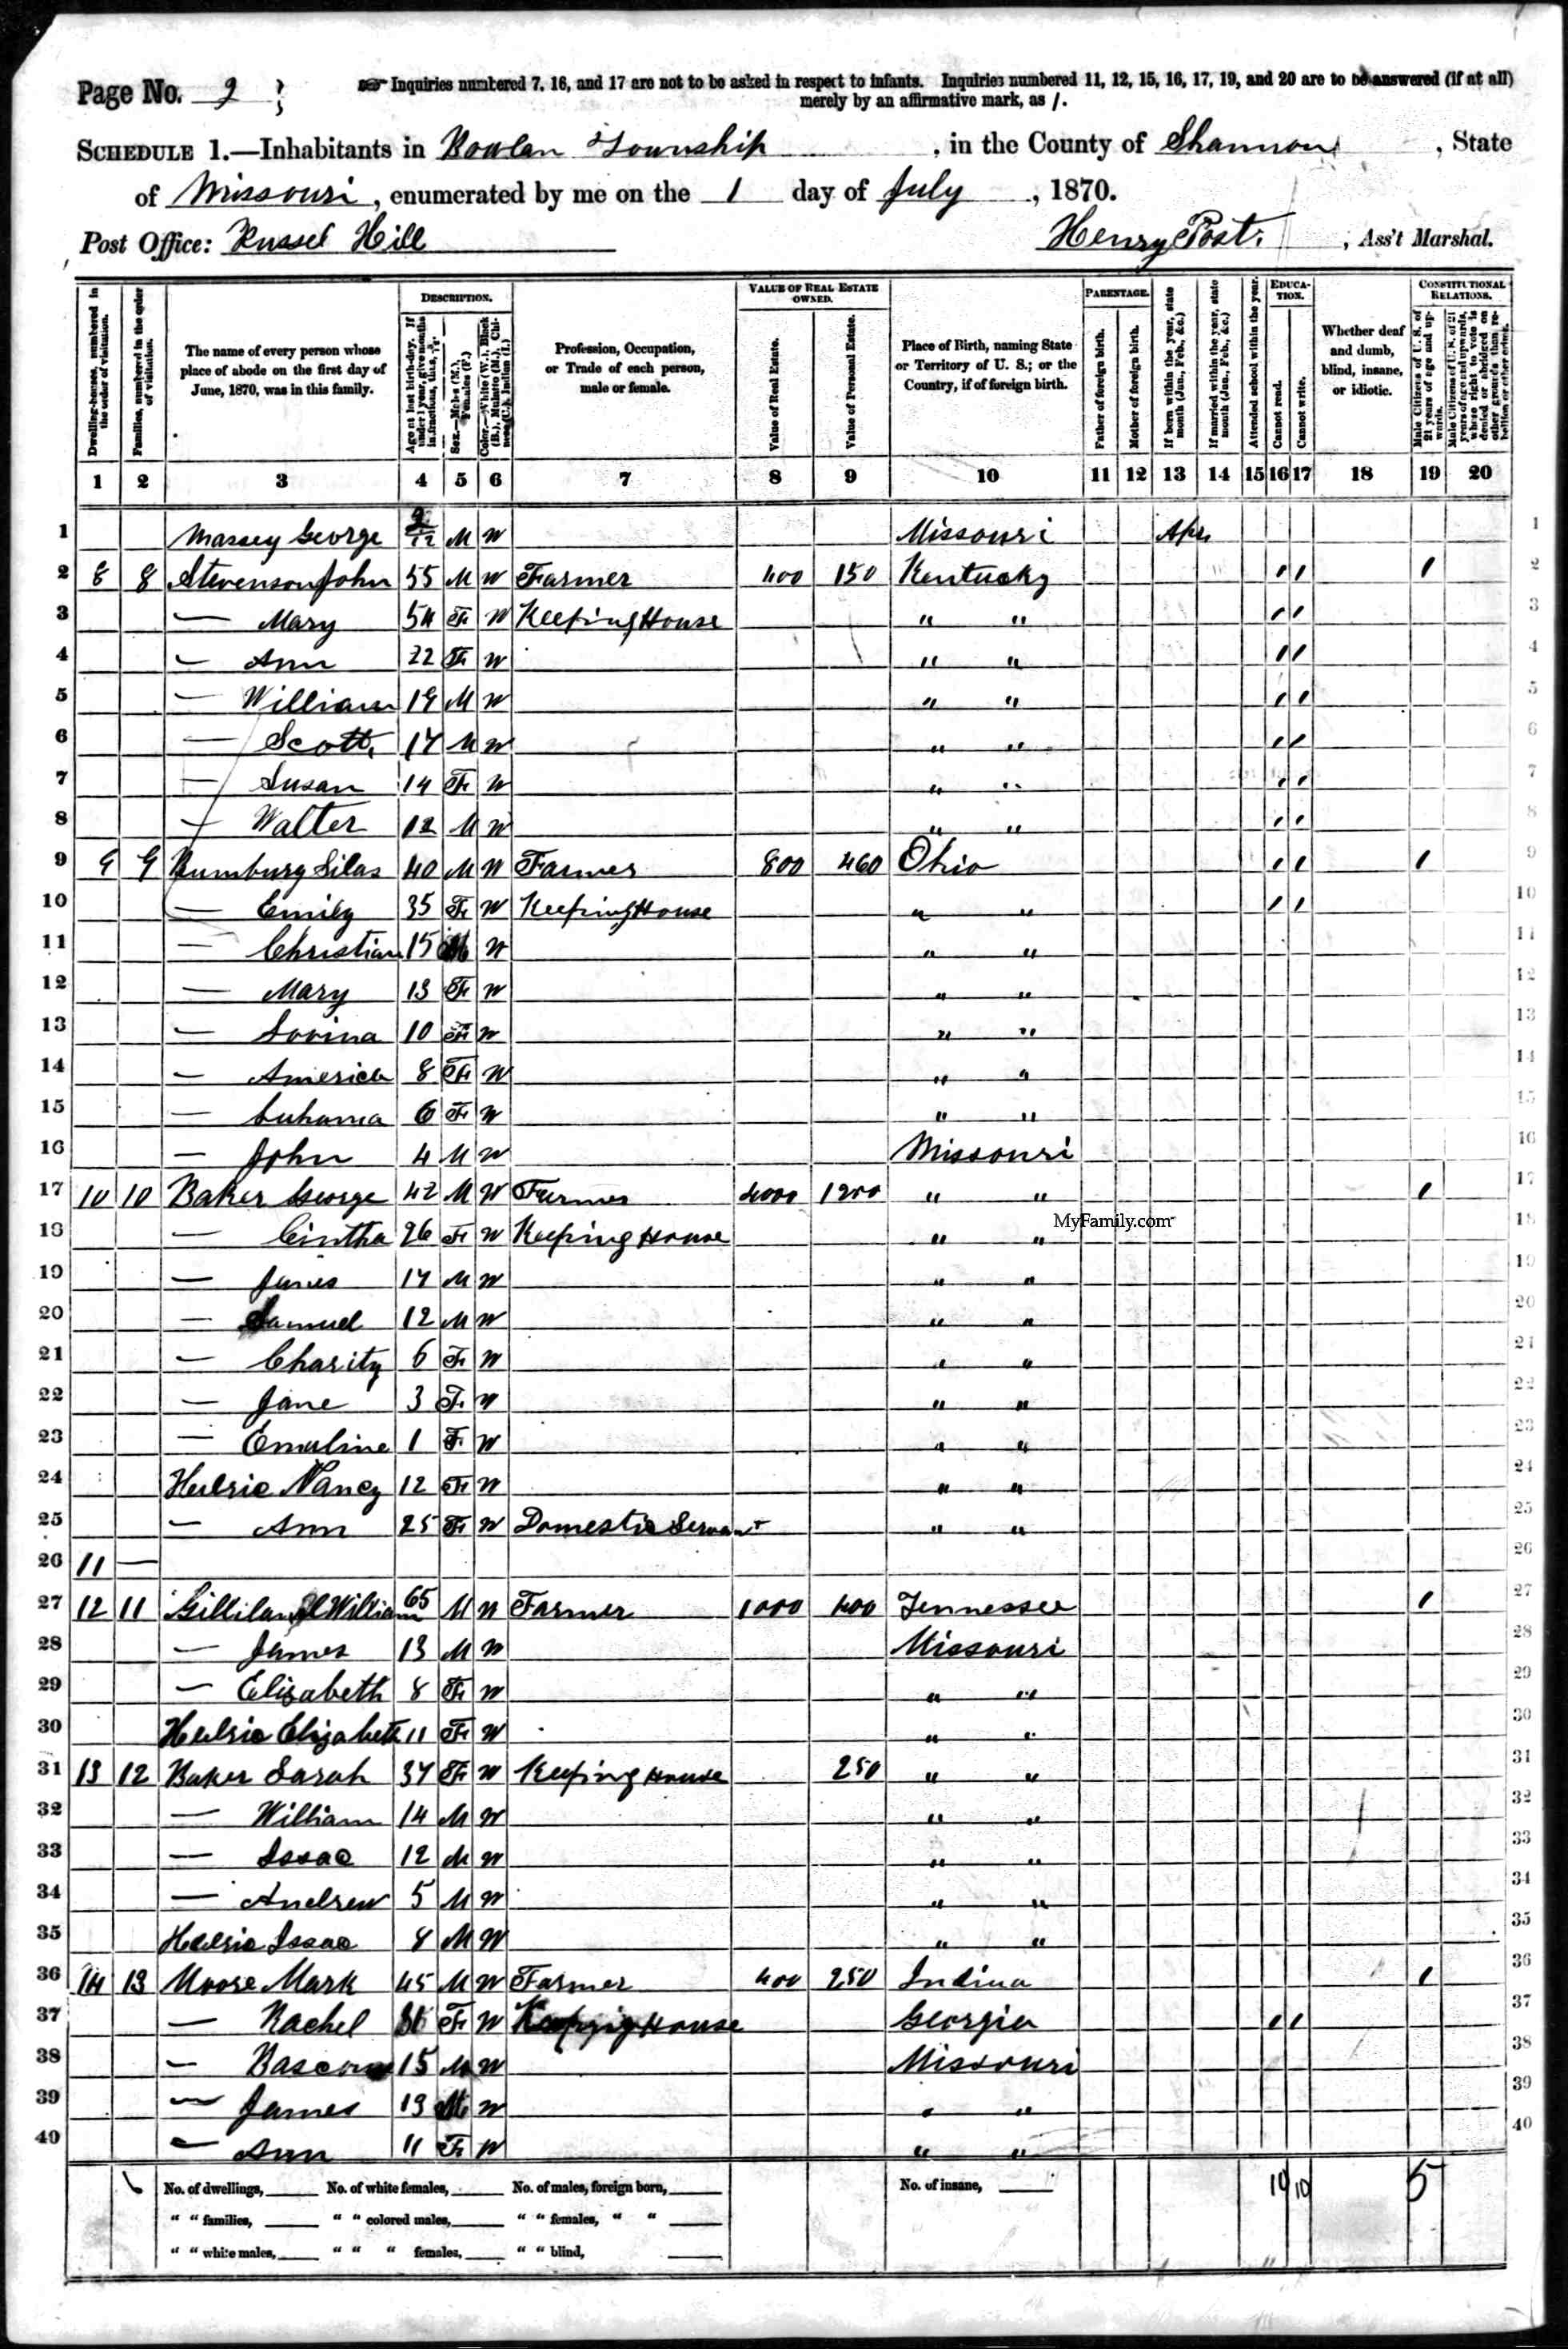 Page No. 2
Inquiries numbered 7, 16, and 17 are not to be asked in respect to infants. Inquiries numbered 11, 12, 15, 16, 17, 19, and 20 are to be answered (if at all)
merely by an affirmative mark, as /.
SCHEDULE 1.—Inhabitants in Township, in the County of Shannon, State
of Missouri, enumerated by me on the 1 day of July, 1870.
Post Office: Russel Hill Henry Post, Ass't Marshal.
DESCRIPTION. VALUE OF REAL ESTATE OWNED. PARENTAGE. EDUCATION. CONSTITUTIONAL RELATIONS.
Dwelling-houses, numbered in the order of visitation.
Families, numbered in the order of visitation.
The name of every person whose place of abode on the first day of June, 1870, was in this family.
Age at last birth-day. If under 1 year, give months in fractions, thus, 3/12.
Sex.—Males (M.), Females (F.)
Color.—White (W.), Black (B.), Mulatto (M.), Chinese (C.), Indian (I.)
Profession, Occupation, or Trade of each person, male or female.
Value of Real Estate.
Value of Personal Estate.
Place of Birth, naming State or Territory of U. S.; or the Country, if of foreign birth.
Father of foreign birth.
Mother of foreign birth.
If born within the year, state month (Jan., Feb., &c.)
If married within the year, state month (Jan., Feb., &c.)
Attended school within the year.
Cannot read.
Cannot write.
Whether deaf and dumb, blind, insane, or idiotic.
Male Citizens of U. S. of 21 years of age and upwards.
Male Citizens of U. S. of 21 years of age and upwards, whose right to vote is denied or abridged on other grounds than rebellion or other crime.
1 2 3 4 5 6 7 8 9 10 11 12 13 14 15 16 17 18 19 20
1 Massey George 2/12 M W Missouri Apr 1
2 8 8 Stevenson John 55 M W Farmer 400 150 Kentucky / / / 2
3 — Mary 54 F W Keeping House " " / / 3
4 — Ann 22 F W " " / / 4
5 — William 19 M W " " / / 5
6 — Scott 17 M W " " / / 6
7 — Susan 14 F W " " / / 7
8 — Walter 12 M W " " / / 8
9 9 9 Silas 40 M W Farmer 800 460 Ohio / / / 9
10 — Emily 35 F W Keeping House " " / / 10
11 — Christian 15 M W " " 11
12 — Mary 13 F W " " 12
13 — Lovina 10 F W " " 13
14 — America 8 F W " " 14
15 — 6 F W " " 15
16 — John 4 M W Missouri 16
17 10 10 Baker George 42 M W Farmer 4000 1200 " " / 17
MyFamily.com
18 — Cintha 26 F W Keeping House " " 18
19 — James 17 M W " " 19
20 — Samuel 12 M W " " 20
21 — Charity 6 F W " " 21
22 — Jane 3 F W " " 22
23 — Emaline 1 F W " " 23
24 Helsie Nancy 12 F W " " 24
25 — Ann 25 F W Domestic Servant " " 25
26 11 — 26
27 12 11 Gilliland William 65 M W Farmer 1000 400 Tennessee / 27
28 — James 13 M W Missouri 28
29 — Elizabeth 8 F W " " 29
30 Helsie Elizabeth 11 F W " " 30
31 13 12 Baker Sarah 37 F W Keeping House 250 " " 31
32 — William 14 M W " " 32
33 — Issac 12 M W " " 33
34 — Andrew 5 M W " " 34
35 Helsie Issac 8 M W " " 35
36 14 13 Moore Mark 45 M W Farmer 400 250 Indina / 36
37 — Rachel F W Keeping House Georgia / / 37
38 — Bascom 15 M W Missouri 38
39 — James 13 M W " " 39
40 — Ann 11 F W " " 40
No. of dwellings, No. of white females, No. of males, foreign born, No. of insane, 10 10 5
" " families, " " colored males, " " females, " "
" " white males, " " " females, " " blind,